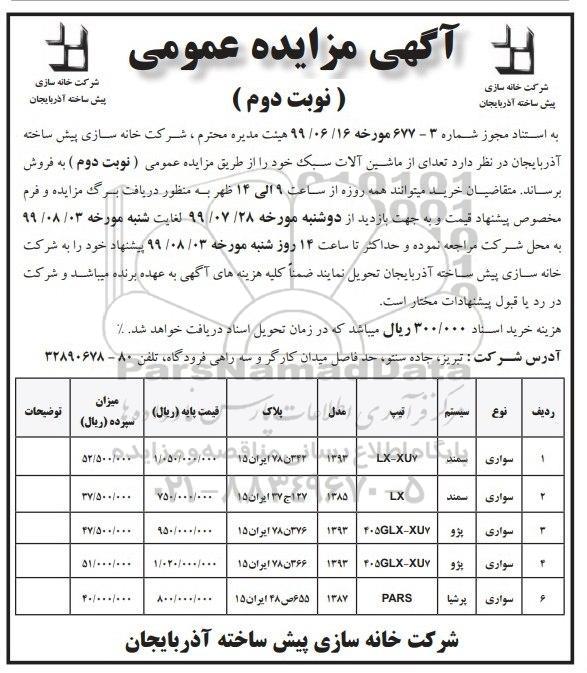 آگهی مزایده عمومی
( نوبت دوم )
شرکت خانه سازی
پیش ساخته آذربایجان
شرکت خانه سازی
پیش ساخته آذربایجان
به استناد مجوز شماره ۳ - ۶۷۷ مورخه ۱۶/ ۰۶/ ۹۹ هیئت مدیره محترم ، شرکت خانه سازی پیش ساخته
آذربایجان در نظر دارد تعدای از ماشین آلات سبک خود را از طریق مزایده عمومی ( نوبت دوم ) به فروش
برساند. متقاضیان خرید میتوانند همه روزه از ساعت ۹ الی ۱۴ ظهر به منظور دریافت برگ مزایده و فرم
مخصوص پیشنهاد قیمت و به جهت بازدید از دوشنبه مورخه ۲۸/ ۰۷/ ۹۹ لغایت شنبه مورخه ۰۳/ ۰۸/ ۹۹
به محل شرکت مراجعه نموده و حداکثر تا ساعت ۱۴ روز شنبه مورخه ۰۳/ ۰۸/ ۹۹ پیشنهاد خود را به شرکت
خانه سازی پیش ساخته آذربایجان تحویل نمایند ضمناً کلیه هزینه های آگهی به عهده برنده میباشد و شرکت
در رد یا قبول پیشنهادات مختار است.
هزینه خرید اسناد ۳۰۰/۰۰۰ ریال میباشد که در زمان تحویل اسناد دریافت خواهد شد. ٪
آدرس شرکت : تبریز، جاده سنتو، حد فاصل میدان کارگر و سه راهی فرودگاه، تلفن ۸۰ - ۳۲۸۹۰۶۷۸
ردیف نوع سیستم تیپ مدل پلاک قیمت پایه (ریال) میزان سپرده (ریال) توضیحات
۱ سواری سمند LX-XU۷ ۱۳۹۳ ۳۴۲ن۷۸ ایران۱۵ ۱/۰۵۰/۰۰۰/۰۰۰ ۵۲/۵۰۰/۰۰۰
۲ سواری سمند LX ۱۳۸۵ ۱۲۷ج۳۷ ایران۱۵ ۷۵۰/۰۰۰/۰۰۰ ۳۷/۵۰۰/۰۰۰
۳ سواری پژو ۴۰۵GLX-XU۷ ۱۳۹۳ ۳۷۶ن۷۸ ایران۱۵ ۹۵۰/۰۰۰/۰۰۰ ۴۷/۵۰۰/۰۰۰
۴ سواری پژو ۴۰۵GLX-XU۷ ۱۳۹۳ ۳۶۶ن۷۸ ایران۱۵ ۱/۰۲۰/۰۰۰/۰۰۰ ۵۱/۰۰۰/۰۰۰
۶ سواری پرشیا PARS ۱۳۸۷ ۶۵۵ص۴۸ ایران۱۵ ۸۰۰/۰۰۰/۰۰۰ ۴۰/۰۰۰/۰۰۰
شرکت خانه سازی پیش ساخته آذربایجان
ParsNamadData
پایگاه اطلاع رسانی مناقصه و مزایده
۰۲۱-۸۸۳۴۹۶۷۰-۵